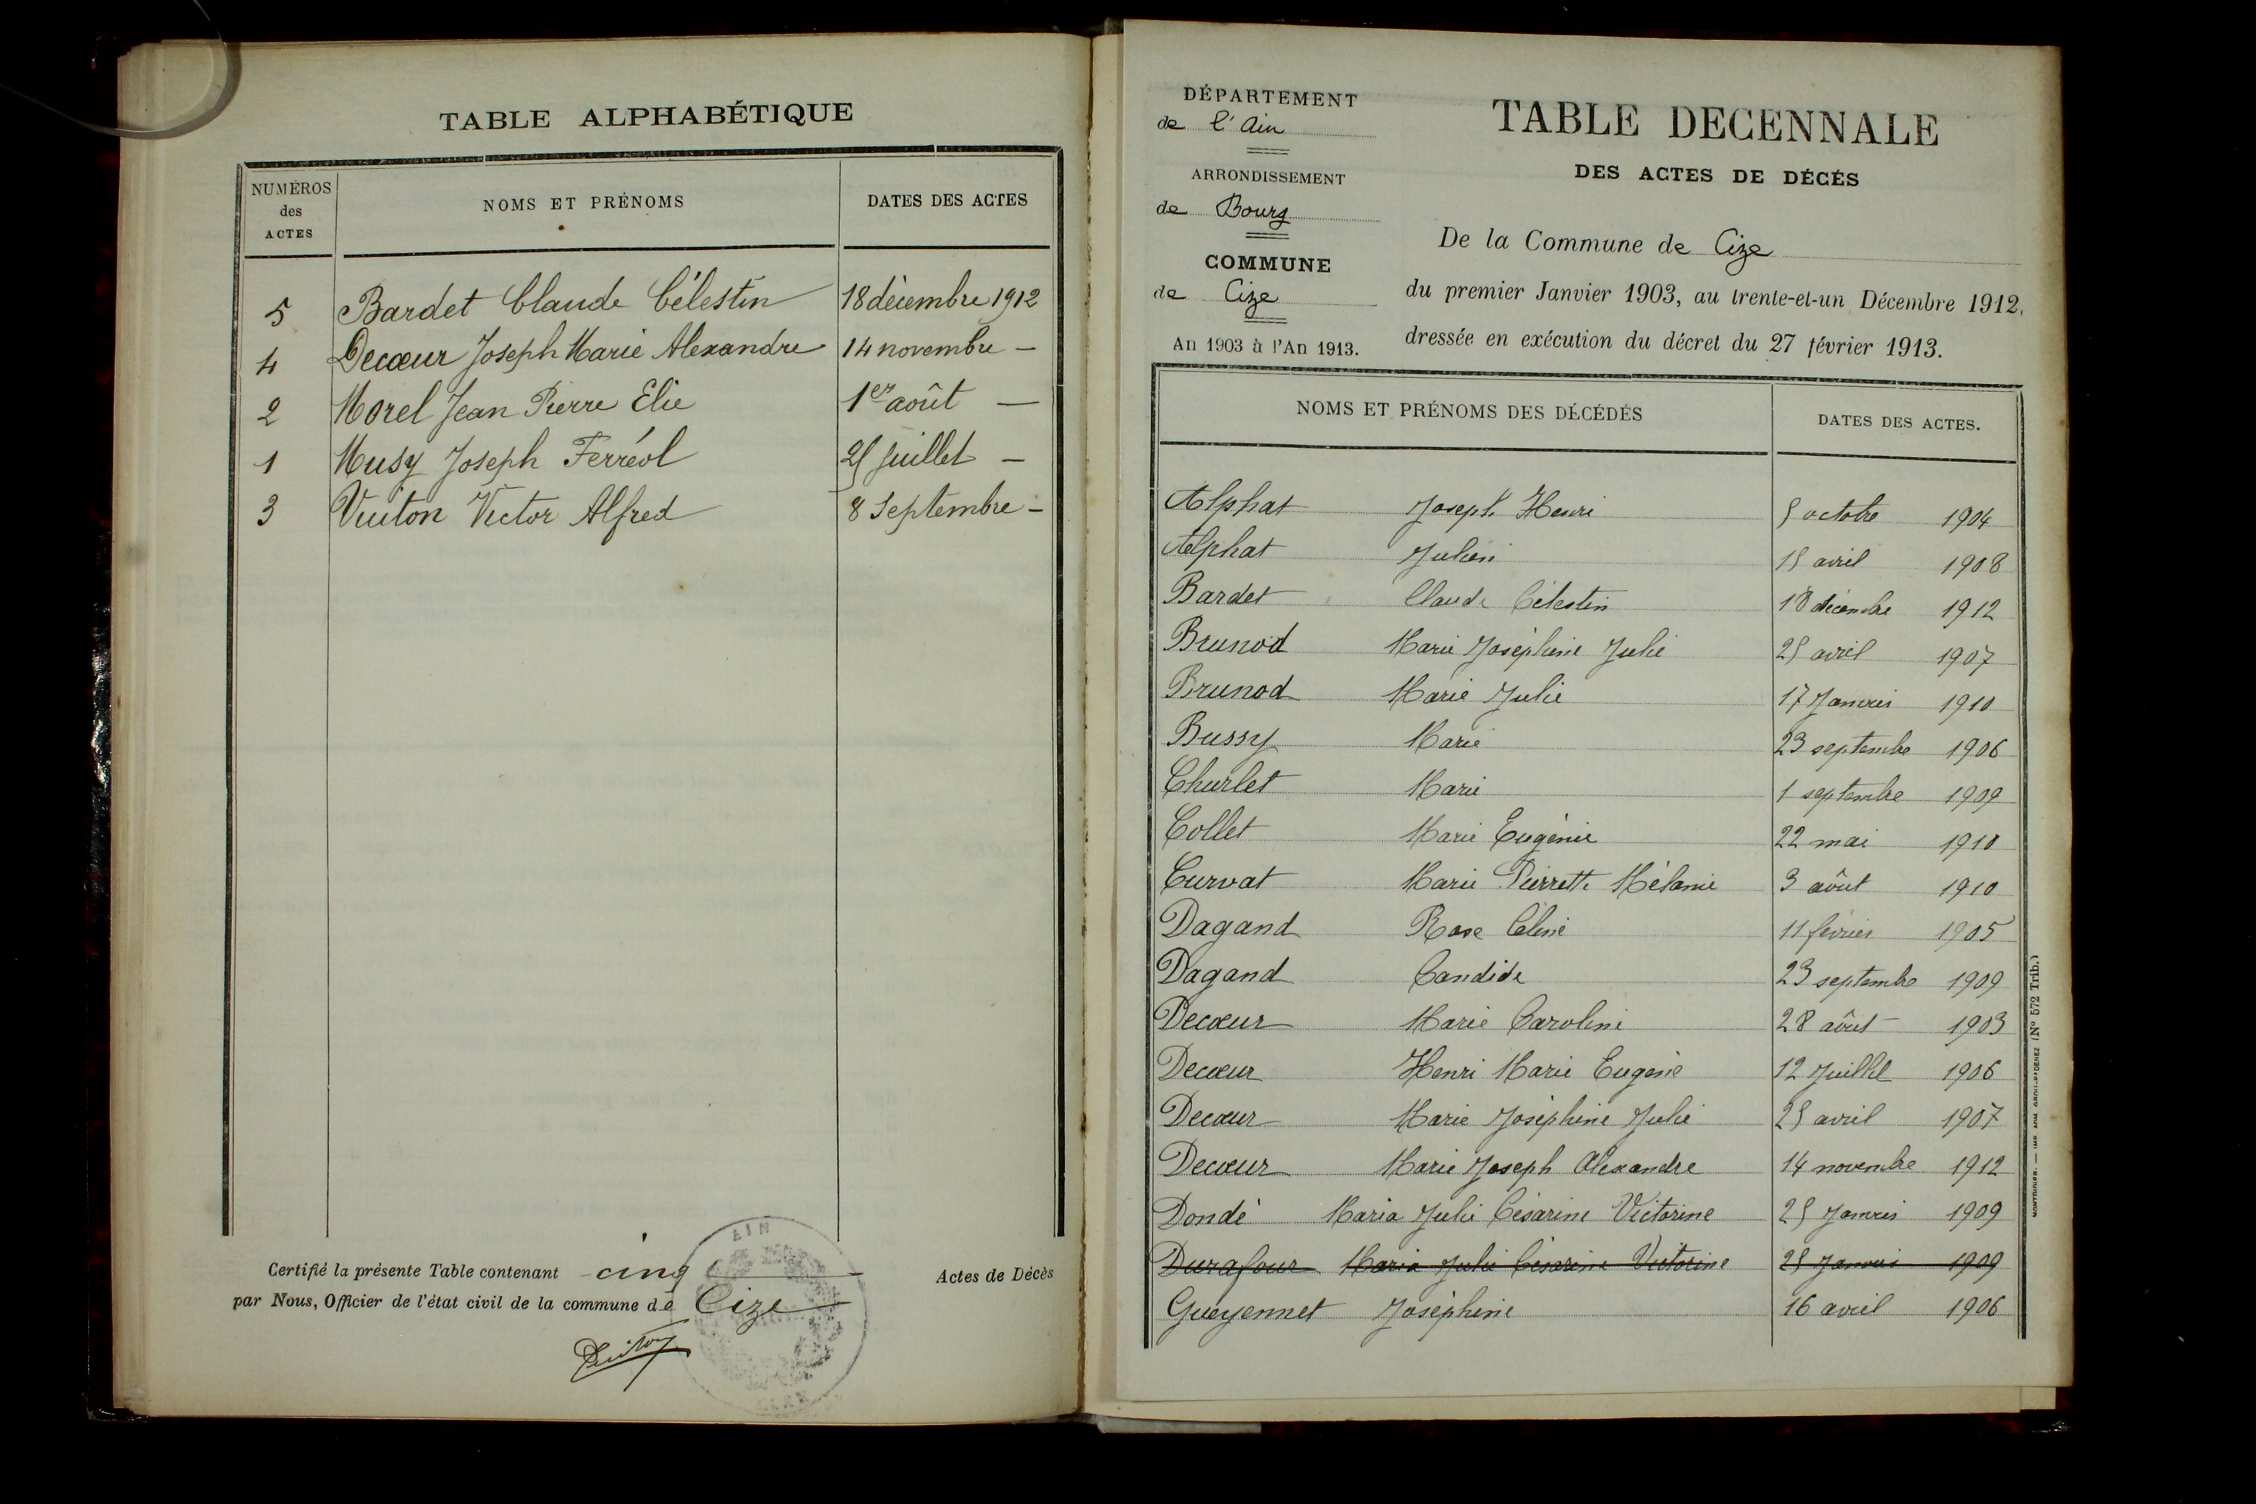 TABLE ALPHABÉTIQUE
NUMÉROS des ACTES
NOMS ET PRÉNOMS
DATES DES ACTES
5 Bardet Claude Célestin 18 décembre 1912
4 Decœur Joseph Marie Alexandre 14 novembre —
2 Morel Jean Pierre Elie 1er août —
1 Musy Joseph Ferréol juillet —
3 Vuiton Victor Alfred 8 Septembre —
Certifié la présente Table contenant cinq Actes de Décès
par Nous, Officier de l'état civil de la commune de Cize
AIN
DÉPARTEMENT
de l'Ain
ARRONDISSEMENT
de Bourg
COMMUNE
de Cize
An 1903 à l'An 1913.
TABLE DECENNALE
DES ACTES DE DÉCÉS
De la Commune de Cize
du premier Janvier 1903, au trente-et-un Décembre 1912,
dressée en exécution du décret du 27 février 1913.
NOMS ET PRÉNOMS DES DÉCÉDÉS
DATES DES ACTES.
Alphat Joseph Henri 5 octobre 1904
Alphat Julien 15 avril 1908
Bardet Claude Célestin 18 décembre 1912
Brunod Marie Joséphine Julie 25 avril 1907
Brunod Marie Julie 17 Janvier 1910
Bussy Marie 23 septembre 1906
Churlet Marie 1 septembre 1909
Collet Marie Eugénie 22 mai 1910
Curvat Marie Pierrette Mélanie 3 août 1910
Dagand Rose Céline 11 février 1905
Dagand Candide 23 septembre 1909
Decœur Marie Caroline 28 août 1903
Decœur Henri Marie Eugène 12 Juillet 1906
Decœur Marie Joséphine Julie 25 avril 1907
Decœur Marie Joseph Alexandre 14 novembre 1912
Dondé Maria Julie Césarine Victorine 25 Janvier 1909
Durafour Maria Julie Césarine Victorine 25 Janvier 1909
Gueyennet Joséphine 16 avril 1906
(N° 572 Trib.)